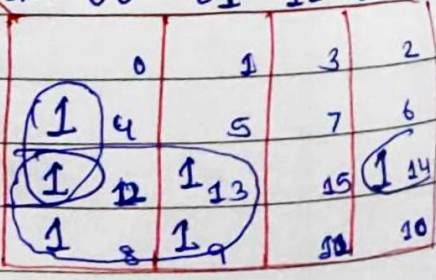 0 1 3 2
1 4 5 7 6
1 12 1 13 15 1 14
1 8 1 9 10